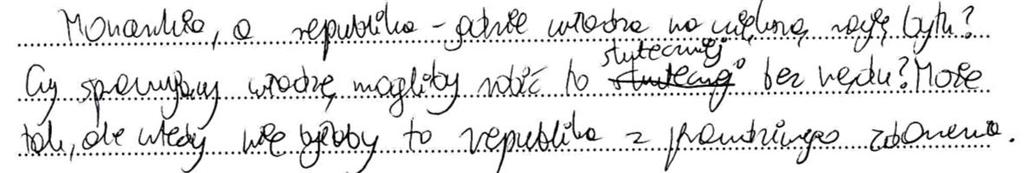 Monarchia, a republika – gdzie władza ma większą rację bytu?
Czy sprawujący władzę mogliby robić to skuteczniej bez rządu? Może
tak, ale wtedy nie byłoby to republika z prawdziwego zdarzenia.